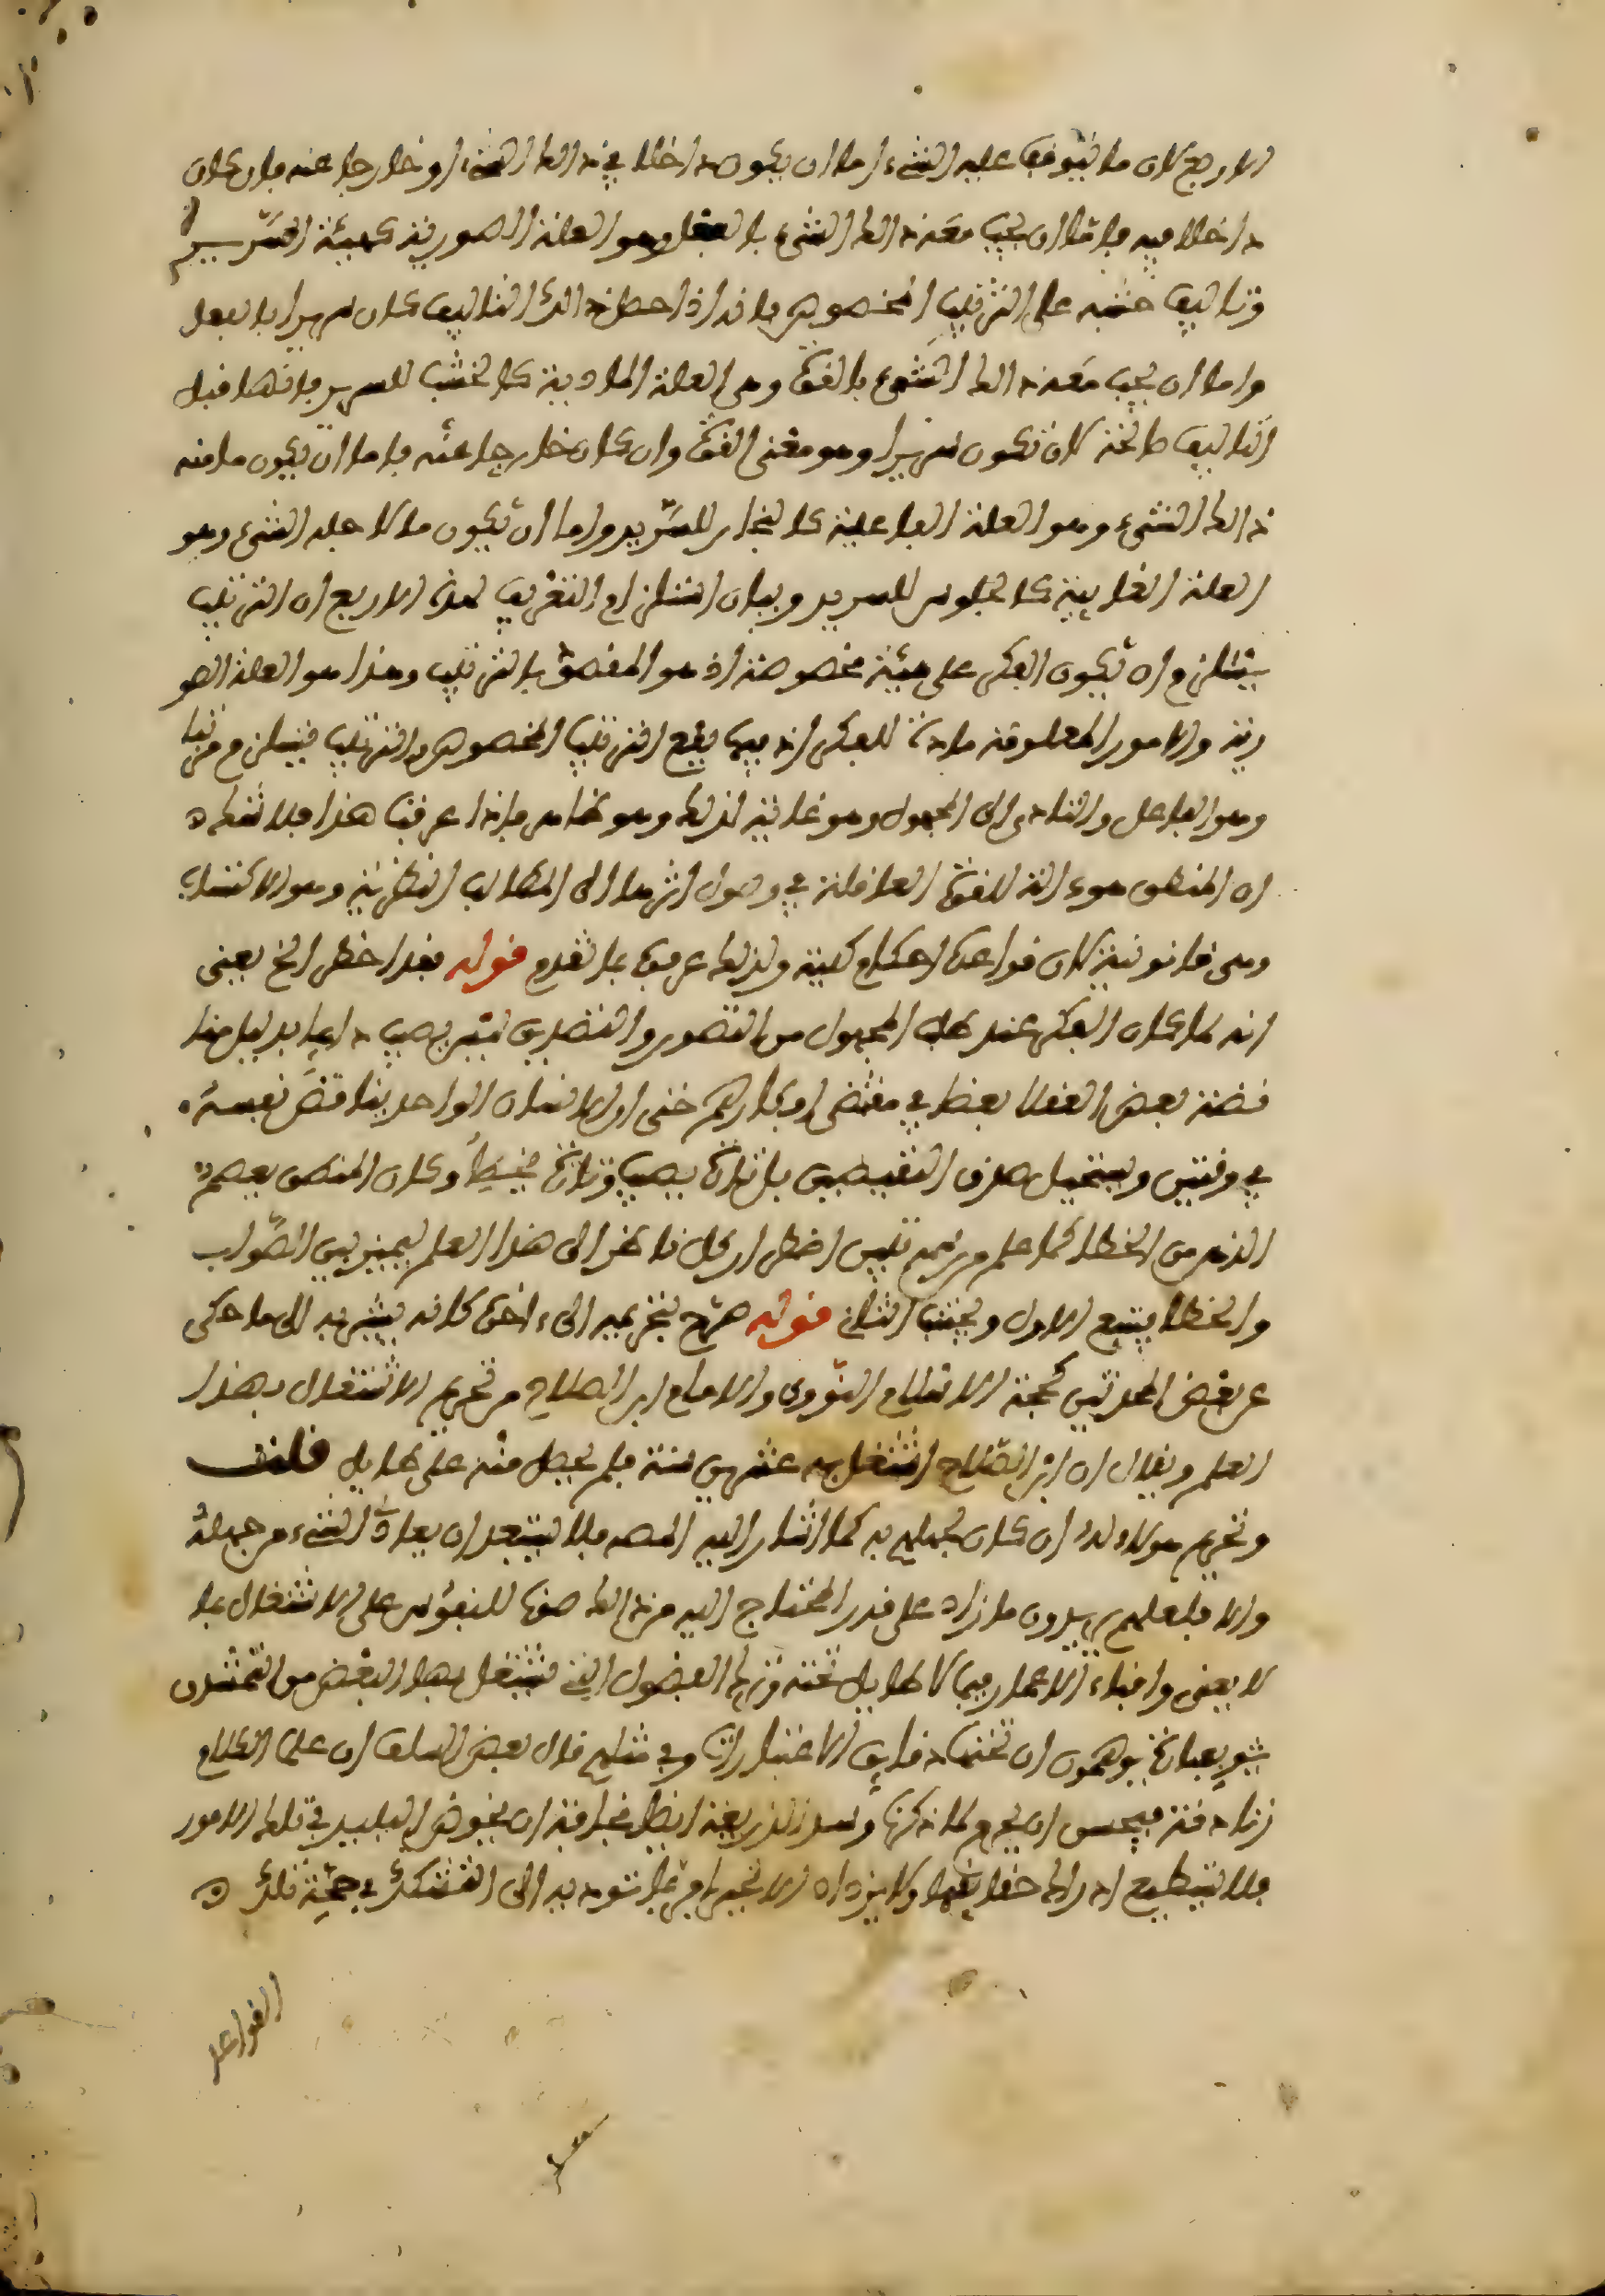 الاربع لان ما يتوقف عليه الشيء اما ان يكون داخلا في ذالك الشيء او خارجا عنه فان كان
داخلا فيه فاما ان يجب معه ذالك الشيء بالفعل وهو العلة الصورية كهيئة السرير
وتاليف خشبه على الترتيب المخصوص فانه اذا حصل ذالك التاليف كان سريرا بالفعل
واما ان يجب معه ذالك الشيء بالقوة وهي العلة المادية كالخشب للسرير فانها قبل
التاليف صالحة لان تكون سريرا وهو معنى القوة وان كان خارجا عنه فاما ان يكون ما منه
ذالك الشيء وهو العلة الفاعلية كالنجار للسرير واما ان يكون ما لاجله الشيء وهو
العلة الغايية كالجلوس للسرير وبيان استلزام التعريف لهذه الاربع ان الترتيب
يستلزم ان يكون الفكر على هيئة مخصوصة اذ هو المقصود بالترتيب وهذا هو العلة الصو
رية والامور المعلومة مادة للفكر اذ فيها يقع الترتيب المخصوص والترتيب فيستلزم مرتبا
وهو الفاعل والتادى الى المجهول وهو غاية لذلك وهو ظاهر فاذا عرفت هذا فلا شك
ان المنطق هو ءالة للقوة العاقلة في وصول اثرها الى المطالب النظرية وهو الاكتساب
وهي قانونية لان قواعده احكام كلية ولذلك عرفوه بما تقدم قوله فقد اخطر الخ يعني
انه لما كان الفكر عند طلب المجهول من التصور والتصديق ليس بصيب دايما بدليل منا
قضة بعض العقلا بعضا في مقتضى افكارهم حتى ان الانسان الواحد يناقض نفسه
في وقتين ويستحيل صدق النقيضين بل تارة يصيب وتارة يخطئ وكان المنطق يعصم
الذهن من الخطا كما علم من رسمه تبين اضطرار كل ناظر الى هذا العلم ليميز بين الصواب
والخطا فيتبع الاول ويجتنب الثاني قوله صرح بتحريمه الىء اخره كانه يشير به الى ما حكي
عن بعض المحدثين كحجة الاسلام النووي والامام ابن الصلاح من تحريم الاشتغال بهذا
العلم ويقال ان ابن الصلاح اشتغل به عشرين سنة فلم يحصل منه على طايل قلت
وتحريم هولاء له ان كان لجهلهم به كما اشار اليه المصه فلا يستبعد ان يعادى الشيء من جهله
والا فلعلهم يريدون ما زاد على قدر المحتاج اليه من ذالك صونا للنفوس على الاشتغال بما
لا يعني وافناء الاعمار فيما لا طايل تحته وتركا الفضول التي يشتغل بها البعض من
بعبارة يوهمون ان تحتها دقايق الاعتبارات وفي مثلهم قال بعض السلف ان علما الكلام
زنادقة فيحسن ان يحرم لما ذكرنا وسد الذريعة ايضا مخافة ان يخوض البليد في تلك الامور
فلا يستطيع ادراك حقايقها ولا يزداد الا تحيرا فربما تؤديه الى التشكك في صحة تلك
القواعد